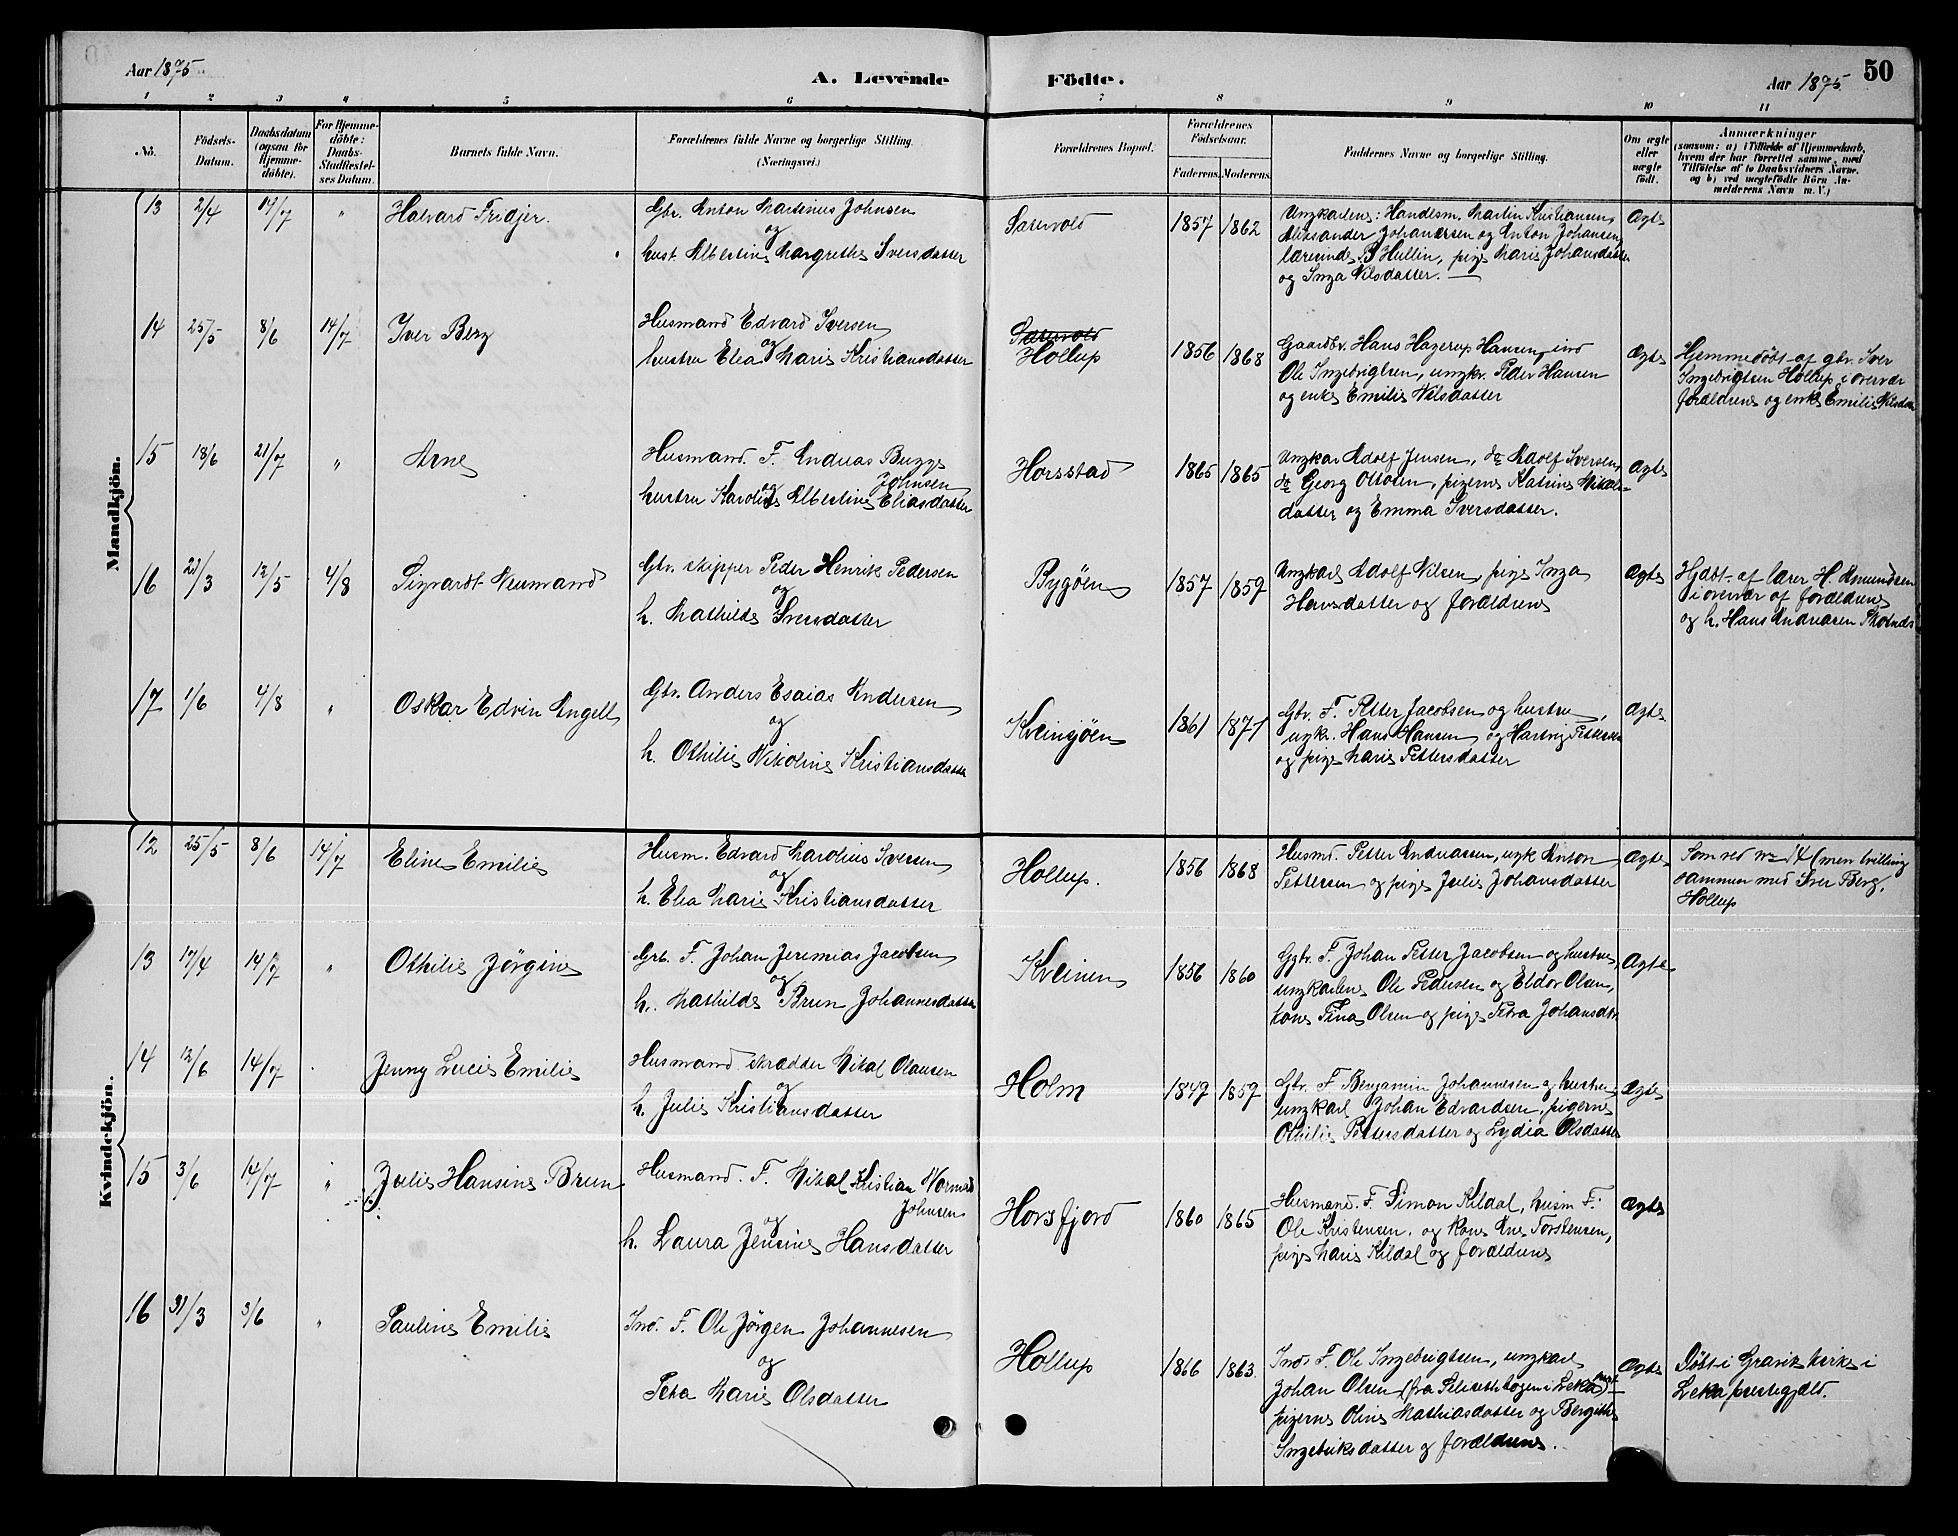 Aar 1895
A. Levende
Födte.
Aar 1895
50
1 2 3 4 5 6 7 8 9 10 11
No.
Födsels-
Datum.
Daabsdatum
(ogsaa for
Hjemme-
döbte).
For Hjemme-
döbte:
Daabs-
Stadfæstel-
ses Datum.
Barnets fulde Navn.
Forældrenes fulde Navne og borgerlige Stilling
(Næringsvei.)
Forældrenes Bopæl.
Forældrenes
Födselsaar.
Faderens. Moderens.
Faddernes Navne og borgerlige Stilling.
Om ægte
eller
uægte
födt.
Anmærkninger
(saasom: a) i Tilfælde af Hjemmedaab,
hvem der har forrettet samme, med
Tilföielse af to Daabsvidners Navne.
og b) ved uægtefödte Börn An-
melderens Navn m. V.)
Mandkjön.
13 2/4 14/7 " Halvard Fridjer.
Gbr. Anton Martinus Johnsen
og
hust. Albertine Margrethe Iversdatter
Satervold 1857 1862
Ungkarlene: Handelsm. Martin Kristiansen,
Aleksander Johanesen og Anton Johansen,
lærerinde B Hullin, pige Marie Johansdatter
og Inga Nilsdatter.
Ægte
14 25/5 8/6 14/7 Iver Berg
Husmand Edvard Iversen
og
hustru Elea Marie Kristiansdatter
Satervold
Hollup 1856 1868
Gaardbr. Hans Hagerup Hansen, ind
Ole Ingebrigtsen, ungkr. Peder Hansen
og enke Emilie Nilsdatter
Ægte
Hjemmedöbt af gbr. Iver
Ingebrigtsen Hollup i overvær
forældrene og enke Emilie Nilsdatr
15 18/6 21/7 " Arne
Husmand. F. Andreas Bugge
Johnsen
og
hustru Karolide Albertine Eliasdatter
Horsstad 1865 1865
Ungkar Adolf Jensen, do Adolf Iversen,
do Georg Ottosen, pigerne Katrine Nikol-
datter og Emma Iversdatter.
Ægte
16 21/3 12/5 4/8 Sigvardt Neumand
Gbr. skipper Peder Henrik Pedersen
og
h. Mathilde Iversdatter
Bygöen 1857 1859
Ungkarl Adolf Nilsen, pige Inga
Hansdatter og forældrene
Ægte
Hjdöbt af lærer H. Amundsen
i overvær af forældrene
og h. Hans Andreasen
17 1/6 4/8 " Oskar Edvin Engell
Gbr. Anders Esaias Andersen
og
h. Othilie Nikoline Kristiansdatter
Kveingöen 1861 1871
Gbr. F. Petter Jacobsen og hustru,
ugkr. Hans Hansen og Hartvig Pettersen
og pige Marie Pettersdatter
Ægte
Kvindekjön.
12 25/5 8/6 14/7 Eline Emilie
Husm. Edvard Marolius Iversen
og
h. Elea Marie Kristiansdatter
Hollup. 1856 1868
Husmd. Petter Andreassen, ugk Anton
Pettersen og pige Julie Johansdatter
Ægte
Som ved No 14 (men tvilling
sammen med Iver Berg,
Hollup
13 17/4 14/7 " Othilie Jörgine
Grb. F. Johan Jeremias Jacobsen
og
h. Mathilde Brun Johannesdatter
Kveinen 1856 1860
Ggbr. F. Johan Petter Jacobsen og hustru,
ungkarlene Ole Pedersen og Eldor Olsen,
kone Tina Olsen og pige Petra Johansdtr
Ægte
14 12/6 14/7 Jenny Lucie Emilie
Husmand skrædder Nikal Olausen
og
h. Julie Kristiansdatter
Holm 1849 1859
Gbr. F Benjamin Johannesen og hustru,
ungkarl Johan Edvardsen, pigerne
Othilie Pettersdatter og Lydia Olsdatter
Ægte
15 3/6 14/7 " Julie Hansine Brun
Husmand. F. Nikal Kristian Normd
Johnsen
og
h. Laura Jensine Hansdatter
Horsfjord 1860 1865
Husmand. F. Simon Kildal, husm F.
Ole Kristensen. og kone Ane Torstensen,
pige Marie Kildal og forældrene
Ægte
16 31/3 3/6 " Pauline Emilie
Ind. F. Ole Jörgen Johannesen
og
Petra Marie Olsdatter
Hollup 1866 1863
Inds F. Ole Ingebrigtsen, ungkarl
Johan Olsen (fra i Leka)
pigerne Oline Mathiasdatter og Bergithe
Ingebriksdatter og forældrene.
Ægte
Döbt i Gravik kirke i
Leka prestegjæld.